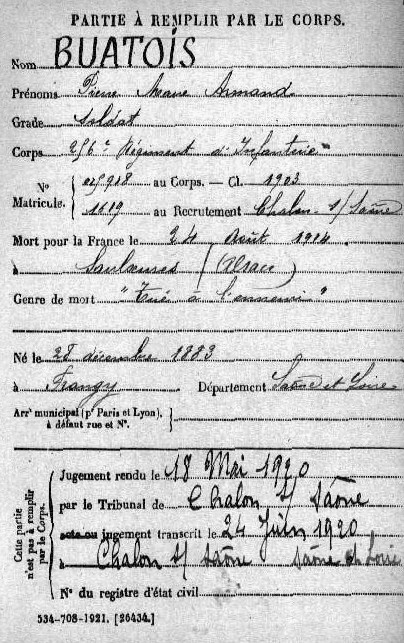 PARTIE À REMPLIR PAR LE CORPS.
Nom BUATOIS
Prénoms Pierre Marie Armand
Grade Soldat
Corps 256e Régiment d'Infanterie
N° Matricule. 025908 au Corps. — Cl. 1903
1619 au Recrutement Chalon-s/Saône
Mort pour la France le 24 Août 1914
à Saulxures (Alsace)
Genre de mort "Tué à l'ennemi"
Né le 28 décembre 1883
à Frangy Département Saône et Loire
Arrt municipal (pr Paris et Lyon), à défaut rue et N°.
Cette partie n'est pas à remplir par le Corps.
Jugement rendu le 18 Mai 1920
par le Tribunal de Chalon s/ Saône
acte ou jugement transcrit le 24 Juin 1920
à Chalon s/ Saône Saône et Loire
N° du registre d'état civil
534-708-1921. [26434.]